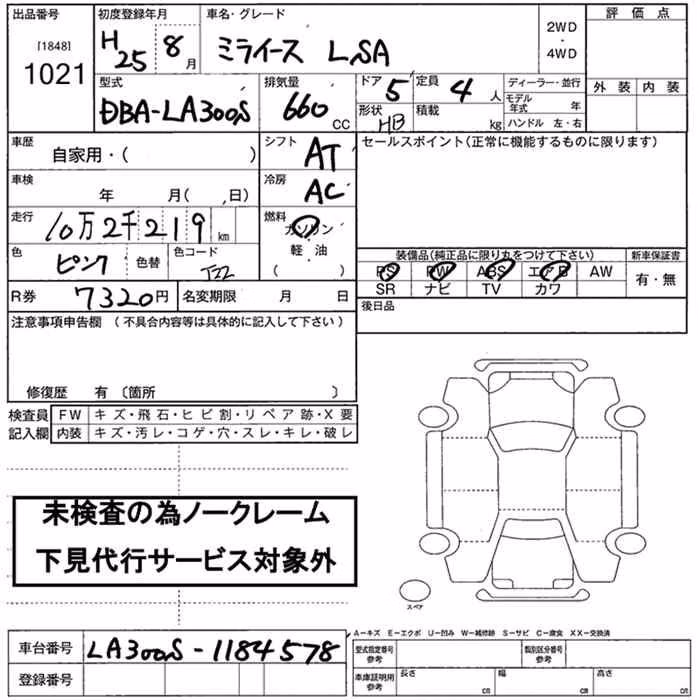 出品番号 初度登録年月 車名・グレード 評価点
[1848] 1021 H25 8月 ミライース L,SA 2WD・4WD
型式 排気量 ドア 5 定員 4人 ディーラー・並行 外装 内装
DBA-LA300S 660CC 形状 HB 積載 kg モデル年式 年
ハンドル 左・右
車歴 自家用・( ) シフト AT セールスポイント(正常に機能するものに限ります)
車検 年 月( ,日) 冷房 AC
走行 10万2千219km 燃料 ガソリン
軽・油
( )
色 ピンク 色替 色コード T22 装備品(純正品に限り丸をつけて下さい) 新車保証書
PS PW ABS エアB AW 有・無
SR ナビ TV カワ
R券 7320円 名変期限 月 日 後日品
注意事項申告欄 (不具合内容等は具体的に記入して下さい)
修復歴 有 〔箇所 〕
検査員 FW キズ・飛石・ヒビ割・リペア跡・X要
記入欄 内装 キズ・汚レ・コゲ・穴・スレ・キレ・破レ
未検査の為ノークレーム
下見代行サービス対象外
スペア
A-キズ E-エクボ U-凹み W-補修跡 S-サビ C-腐食 XX-交換済
車台番号 LA300S-1184578 型式指定番号 参考 類別区分番号 参考
登録番号 車庫証明用 参考 長さ cm 幅 cm 高さ cm